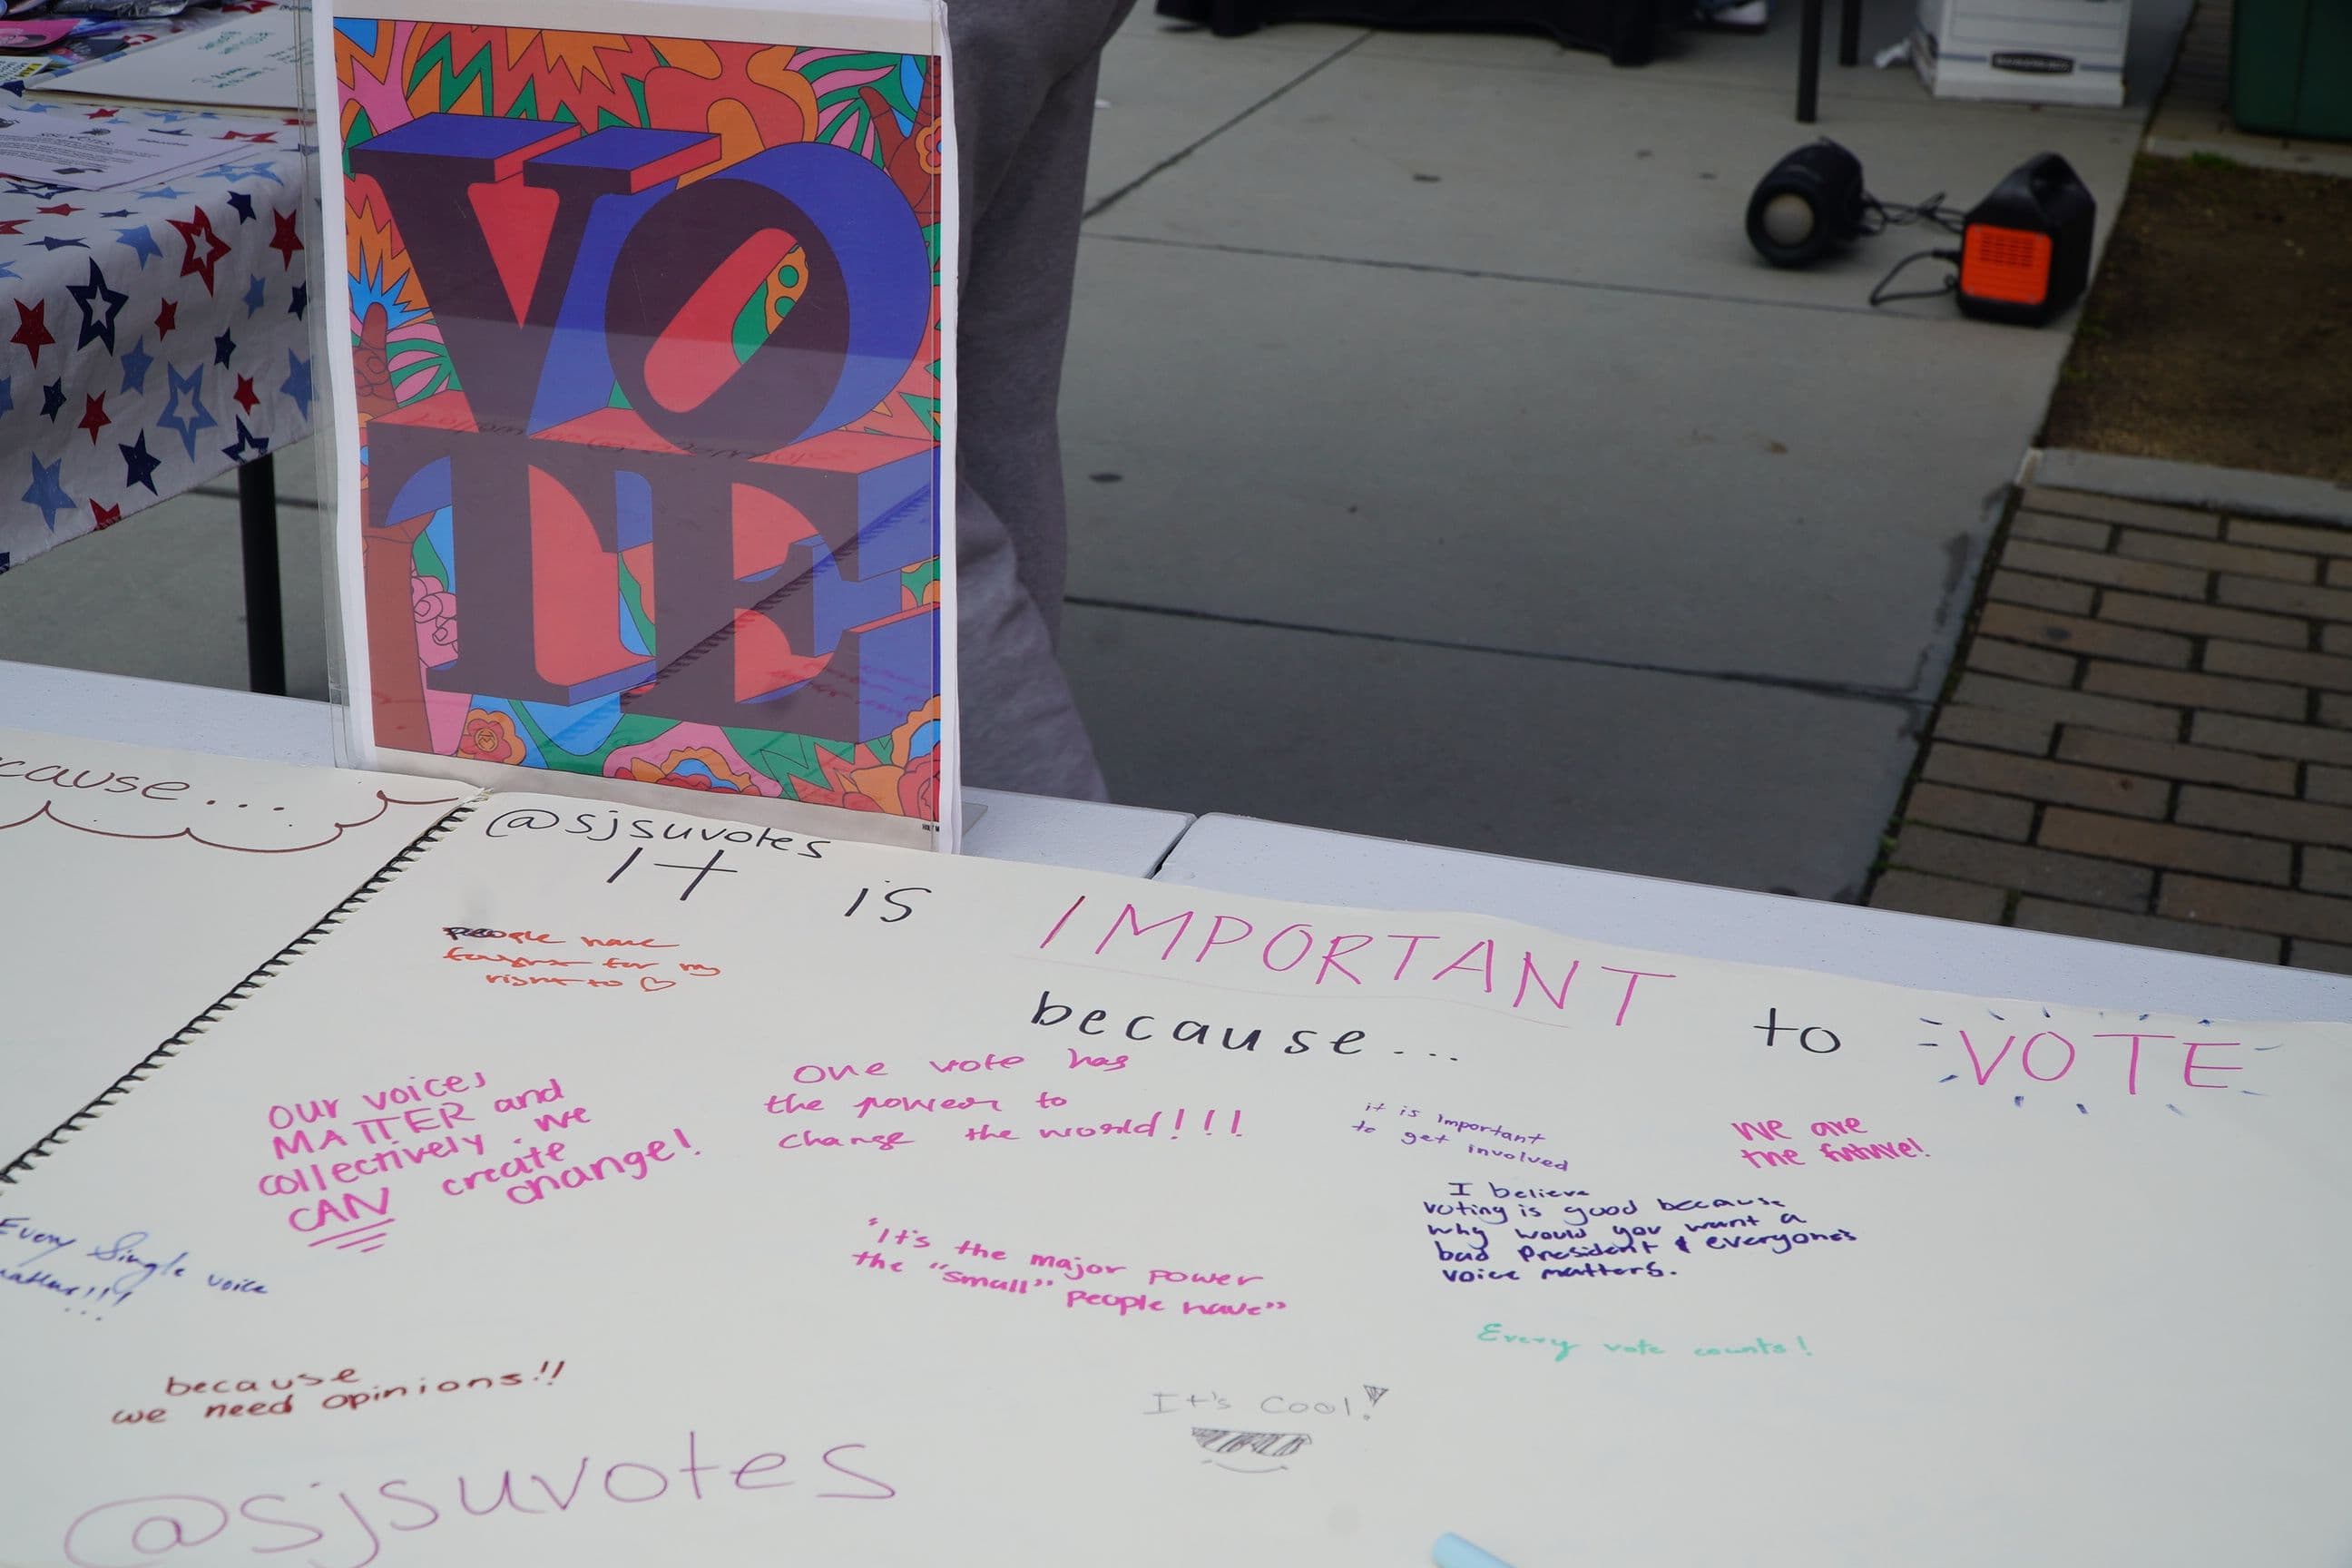 VO
TE
cause...
@sjsuvotes
It is IMPORTANT to VOTE
because...
people have
fought for my
right to ♡
Our voices
MATTER and
collectively we
CAN create
change!
One vote has
the power to
change the world!!!
it is important
to get involved
We are
the future!
I believe
voting is good because
why would you want a
bad President & everyone's
voice matters.
"It's the major power
the "small" people have"
Every Single voice
matters!!!
Every vote counts!
because
we need opinions!!
It's Cool!
@sjsuvotes